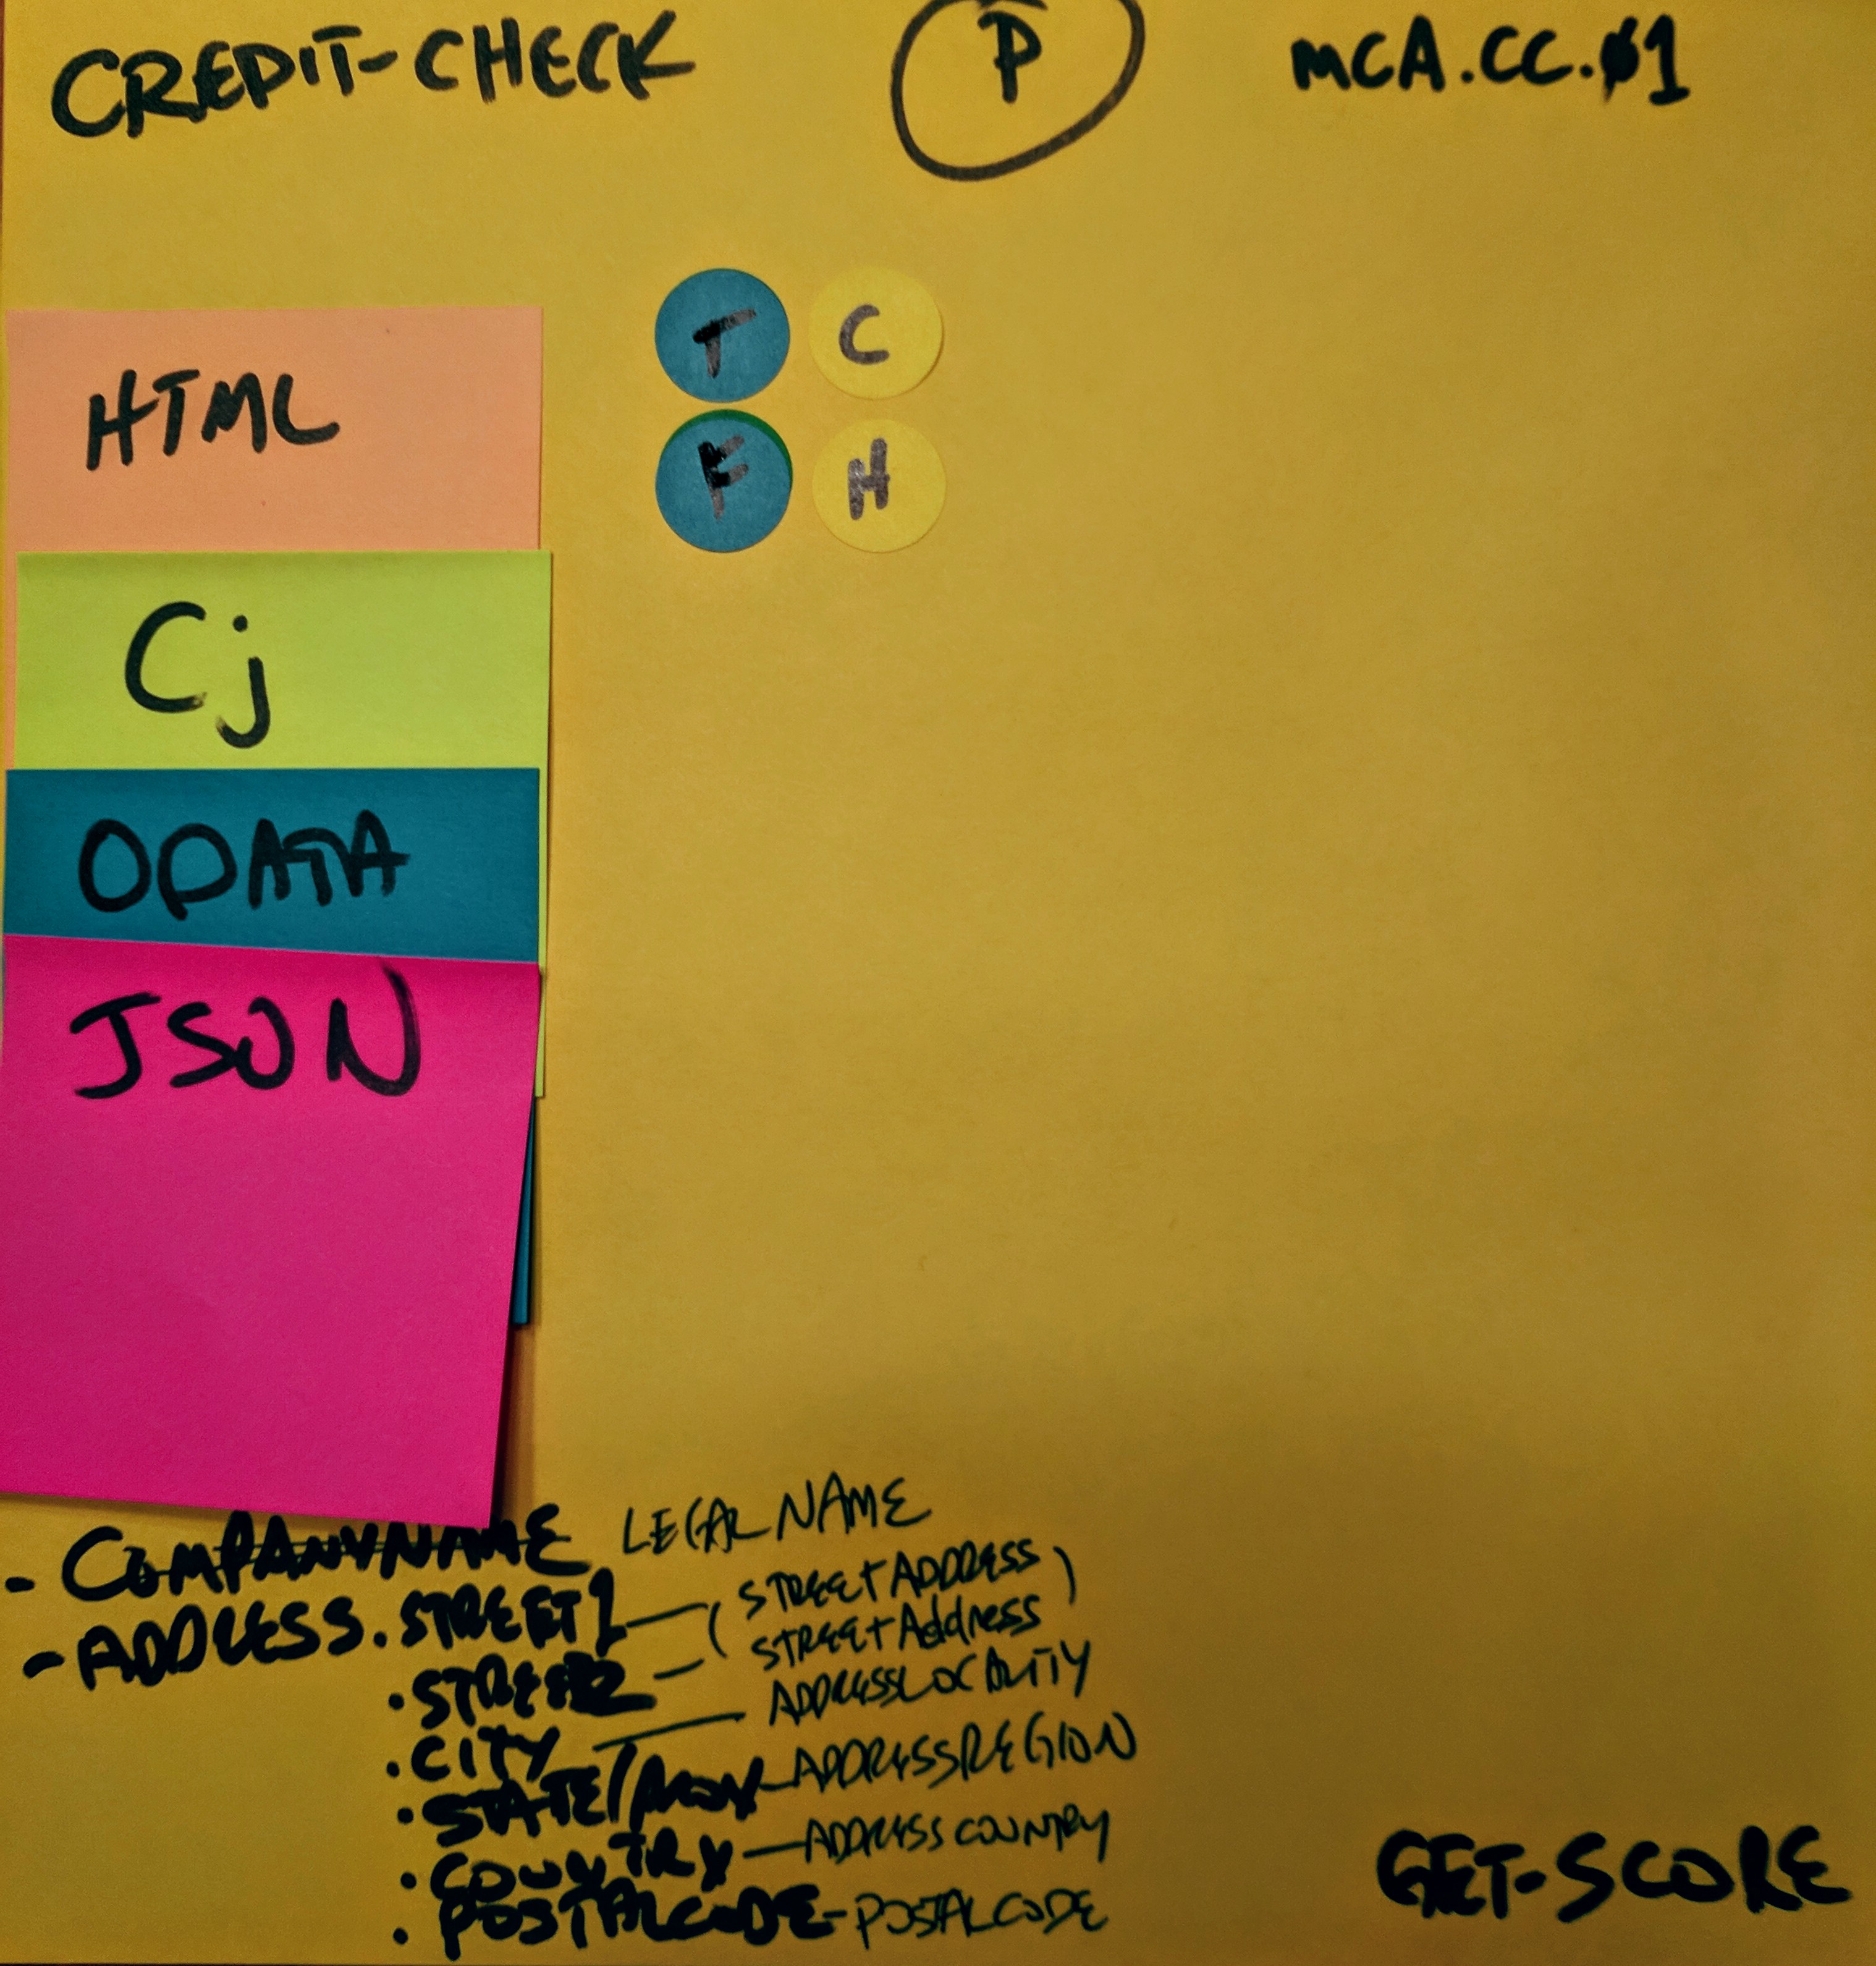 CREDIT-CHECK P MCA.CC.Ø1
T C
F H
HTML
Cj
ODATA
JSON
- COMPANYNAME LEGAL NAME
- ADDRESS.STREET1 — (STREET ADDRESS)
.STREET2 — (STREET Address
.CITY — ADDRESSLOCALITY
.STATE/PROV - ADDRESSREGION
.COUNTRY — ADDRESSCOUNTRY
.POSTALCODE - POSTALCODE
GET-SCORE